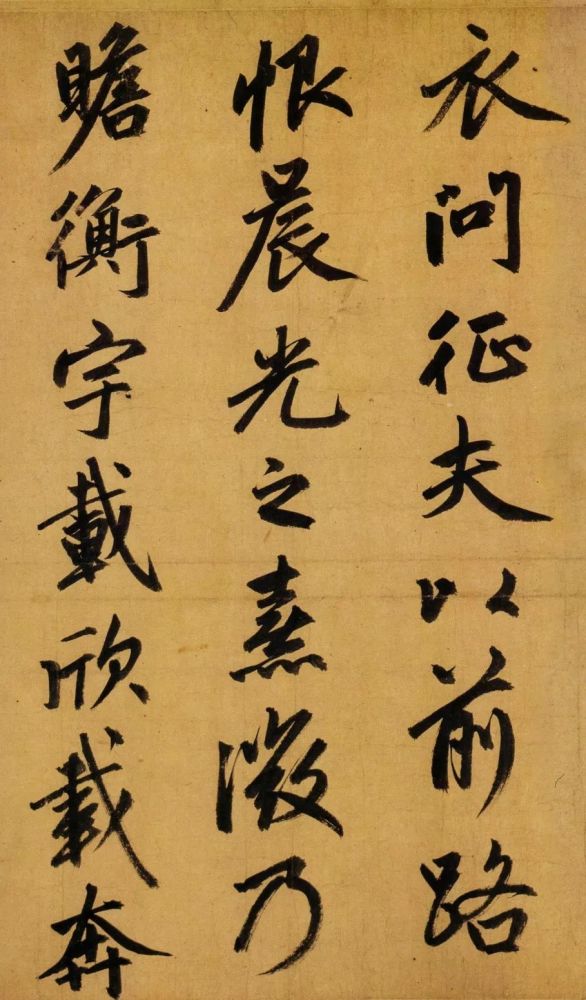 衣問征夫以前路
恨晨光之熹微乃
瞻衡宇載欣載奔